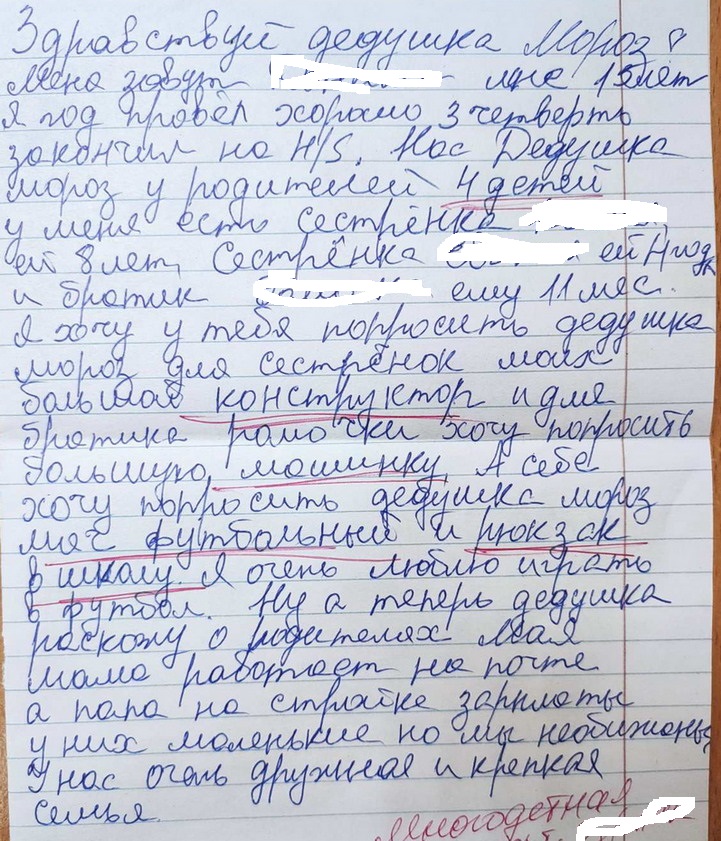 Здравствуй дедушка Мороз
Меня зовут мне 15 лет
Я год провёл хорошо 3 четверть
закончил на 4/5. Нас Дедушка
мороз у родителей 4 детей
у меня есть сестрёнка
ей 8 лет, Сестрёнка ей 4 года
и братик ему 11 мес.
Я хочу у тебя попросить дедушка
мороз для сестрёнок моих
большой конструктор и для
братика хочу попросить
большую машинку. А себе
хочу попросить дедушка мороз
мяч футбольный и рюкзак
в школу. Я очень люблю играть
в футбол. Ну а теперь дедушка
раскажу о родителях Моя
мама работает на почте
а папа на стройке зарплаты
у них маленькие но мы необижаны
У нас очень дружная и крепкая
семья.
Многодетная